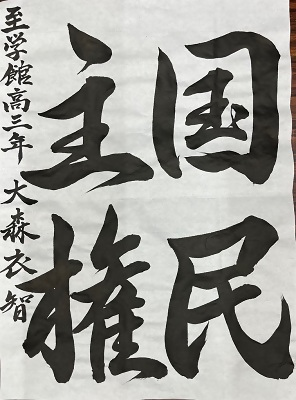 国民
主権
至学館高三年 大森衣智